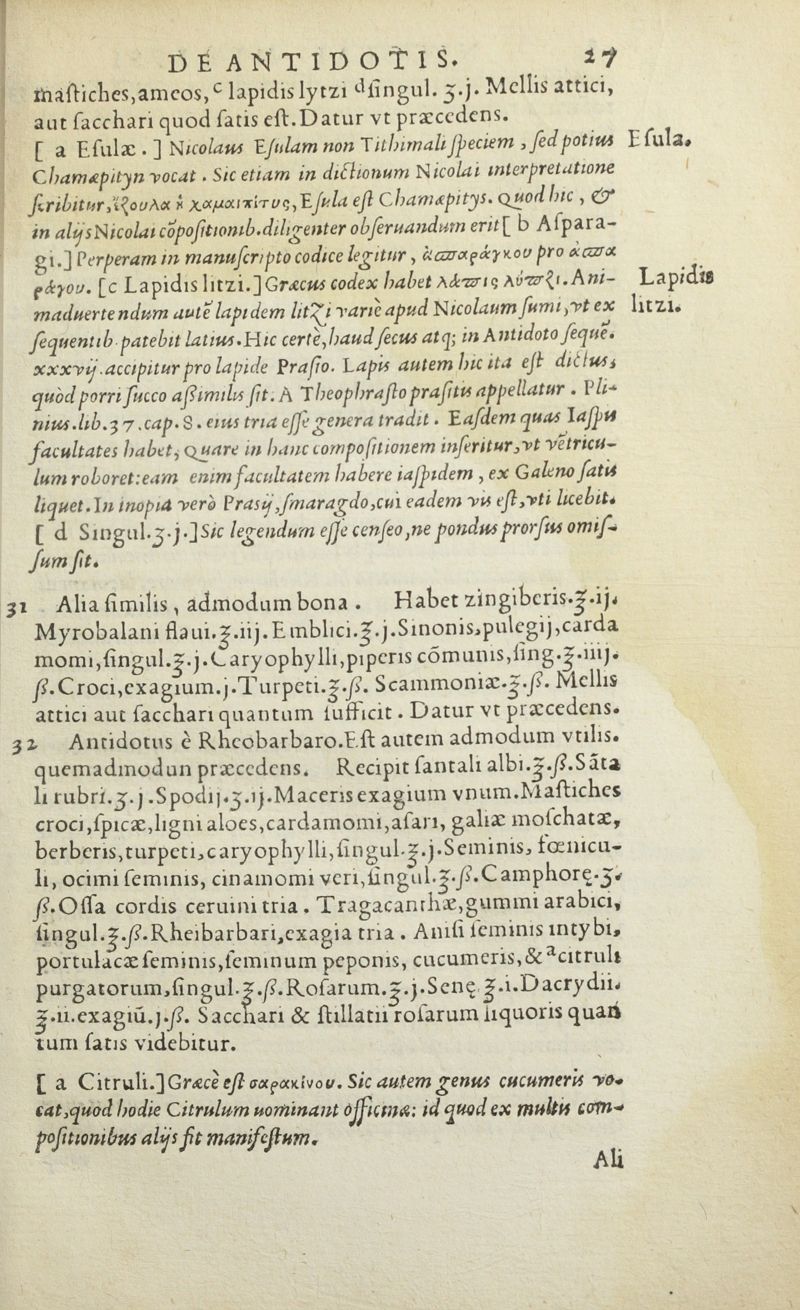 DE ANTIDOTIS. 27
maſtiches,ameos,ᶜ lapidis lytzi ᵈſingul. ʒ.j. Mellis attici,
aut ſacchari quod ſatis eſt.Datur vt præcedens.
[ a Eſulæ . ] Nicolaus Eſulam non Tithimali ſpeciem , ſed potius Eſula.
Chamæpityn vocat . Sic etiam in dictionum Nicolai interpretatione
ſcribitur, ἰζουλα ἡ χαμαιπίτυς, Eſula eſt Chamæpitys. Quod hic , &
in alijs Nicolai cõpoſitionib.diligenter obſeruandum erit[ b Aſpara-
gi.] Perperam in manuſcripto codice legitur , ἀσπαράγκου pro ἀσπα
ράγου. [c Lapidis litzi.] Græcus codex habet λάπις λύτζι. Ani- Lapidis
maduertendum autẽ lapidem litzi varie apud Nicolaum ſumi,vt ex litzi.
ſequentib.patebit latius.Hic certè,haud ſecus atq; in Antidoto ſeque.
xxxvij.accipitur pro lapide Praſio. Lapis autem hic ita eſt dictus,
quòd porri ſucco aſsimilis ſit. A Theophraſto praſitis appellatur . Pli-
nius.lib.37.cap.8.eius tria eſſe genera tradit. Eaſdem quas Iaſpis
facultates habet, Quare in hanc compoſitionem inſeritur,vt vẽtricu-
lum roboret:eam enim facultatem habere iaſpidem , ex Galeno ſatis
liquet.In inopia verò Praſij,ſmaragdo,cui eadem vis eſt,vti licebit.
[ d Singul.ʒ.j.] Sic legendum eſſe cenſeo,ne pondus prorſus omiſ-
ſum ſit.
31 Alia ſimilis, admodum bona . Habet zingiberis.℥.ij.
Myrobalani flaui.℥.iij.Emblici.℥.j.Sinonis,pulegij,carda
momi,ſingul.℥.j.Caryophylli,piperis cõmunis,ſing.℥.iiij.
ß.Croci,exagium.j.Turpeti.℥.ß. Scammoniæ.℥.ß. Mellis
attici aut ſacchari quantum ſufficit . Datur vt præcedens.
32 Antidotus è Rheobarbaro.Eſt autem admodum vtilis.
quemadmodun præcedens. Recipit ſantali albi.℥.ß.Sãta
li rubri.ʒ.j.Spodij.ʒ.ij.Maceris exagium vnum.Maſtiches
croci,ſpicæ,ligni aloes,cardamomi,aſari, galiæ moſchatæ,
berberis,turpeti,caryophylli,ſingul.℥.j.Seminis, fœnicu-
li, ocimi ſeminis, cinamomi veri,ſingul.℥.ß.Camphorę.ʒ.
ß.Oſſa cordis ceruini tria . Tragacanthæ,gummi arabici,
ſingul.℥.ß.Rheibarbari,exagia tria . Aniſi ſeminis intybi,
portulacæ ſeminis,ſeminum peponis, cucumeris,&ᵃcitruli
purgatorum,ſingul.℥.ß.Roſarum.℥.j.Senę.℥.i.Dacrydii.
℥.ii.exagiũ.j.ß. Sacchari & ſtillatii roſarum liquoris quan
tum ſatis videbitur.
[ a Citruli.] Græcè eſt σαρακίνου. Sic autem genus cucumeris vo-
cat,quod hodie Citrulum nominant officinæ: id quod ex multis com-
poſitionibus alijs fit manifeſtum.
Ali